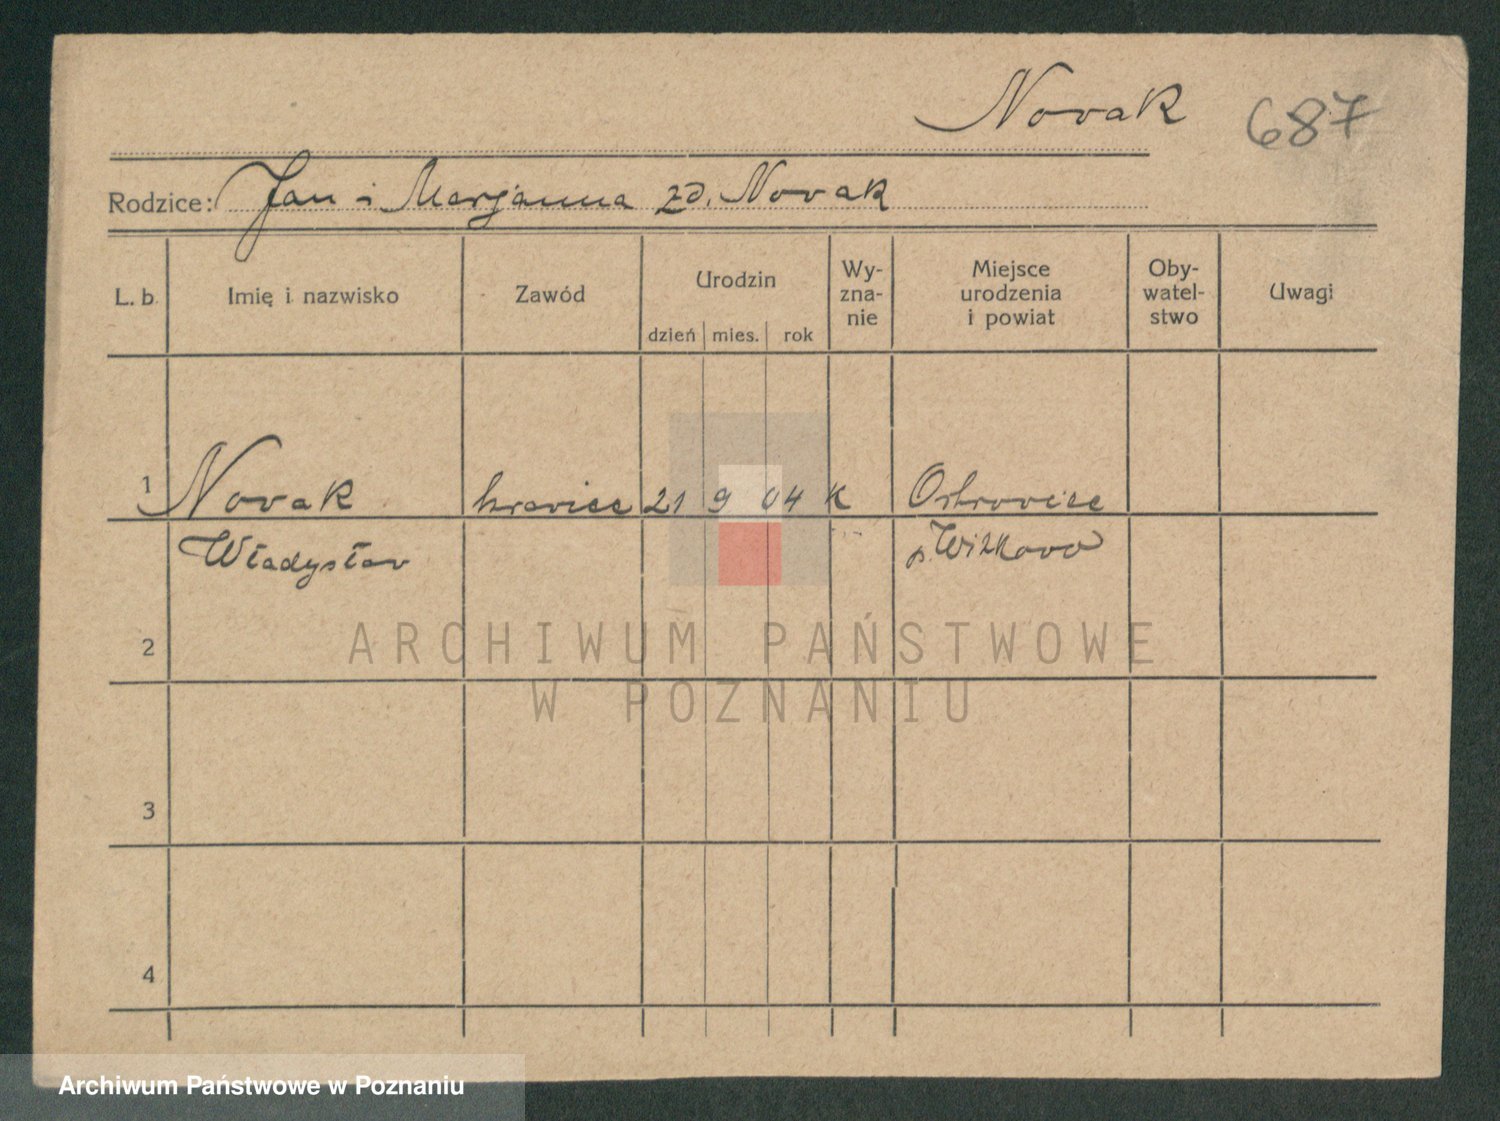 Novak 687
Rodzice: Jan i Marjanna zd. Novak
L. b. Imię i nazwisko Zawód Urodzin dzień mies. rok Wy-zna-nie Miejsce urodzenia i powiat Oby-watel-stwo Uwagi
1 Novak kraviec 21 9 04 K Ostroviec
Władysłav p. Witkovo
2
ARCHIWUM PAŃSTWOWE
W POZNANIU
3
4
Archiwum Państwowe w Poznaniu